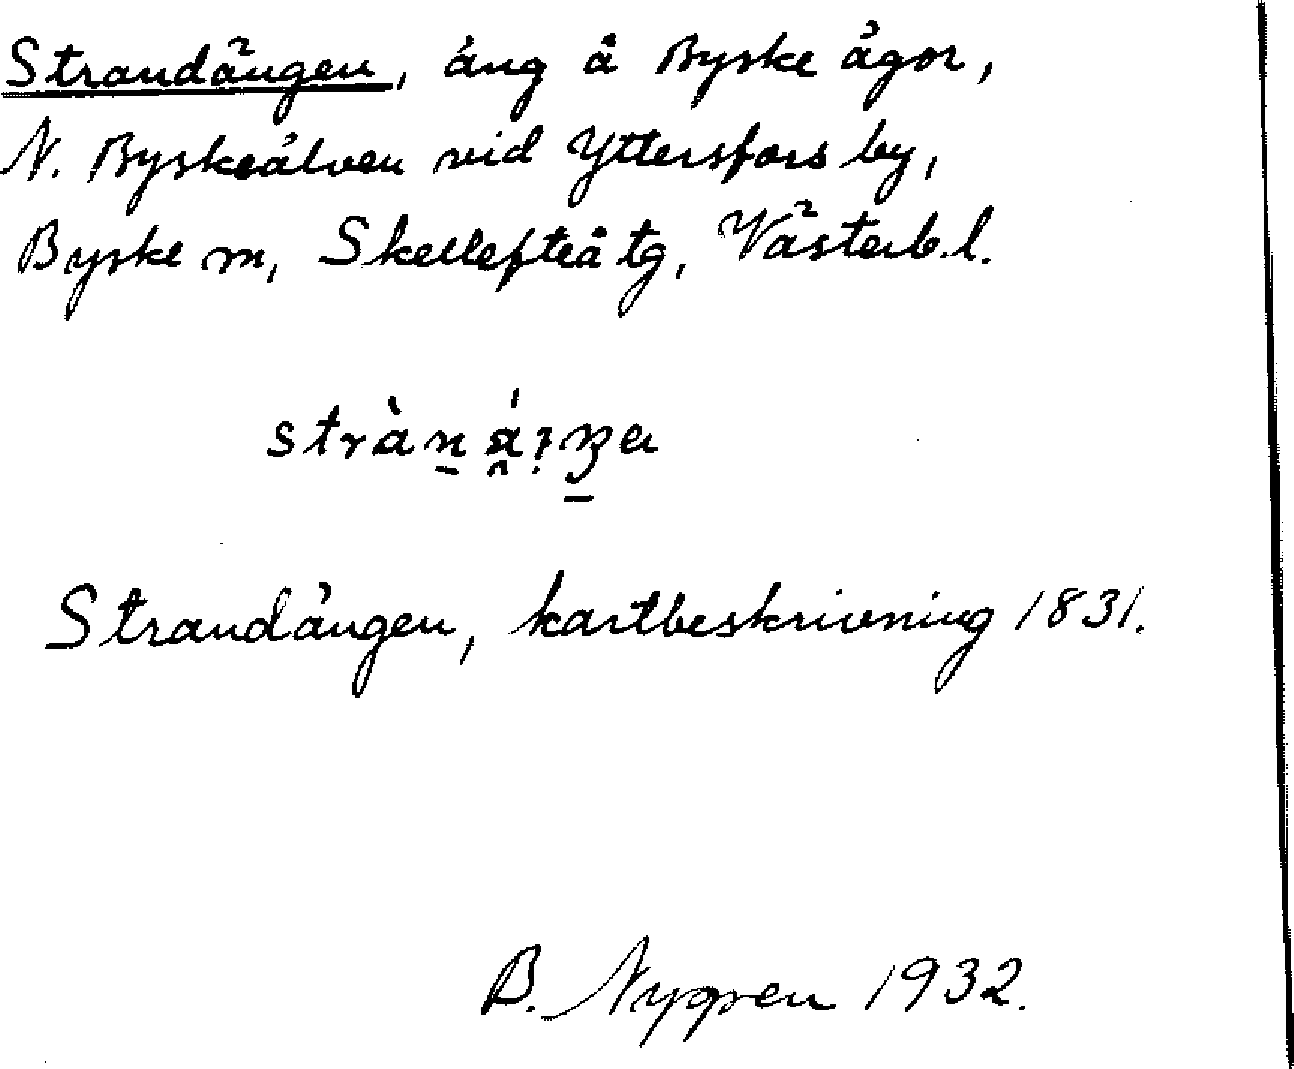 Strandängen, äng å Byske ägor,
N. Byskeälven vid Yttersfors by,
Byske sn, Skellefteå tg, Västerb. l.
Strandängen, kartbeskrivning 1831.
B. Nygren 1932.